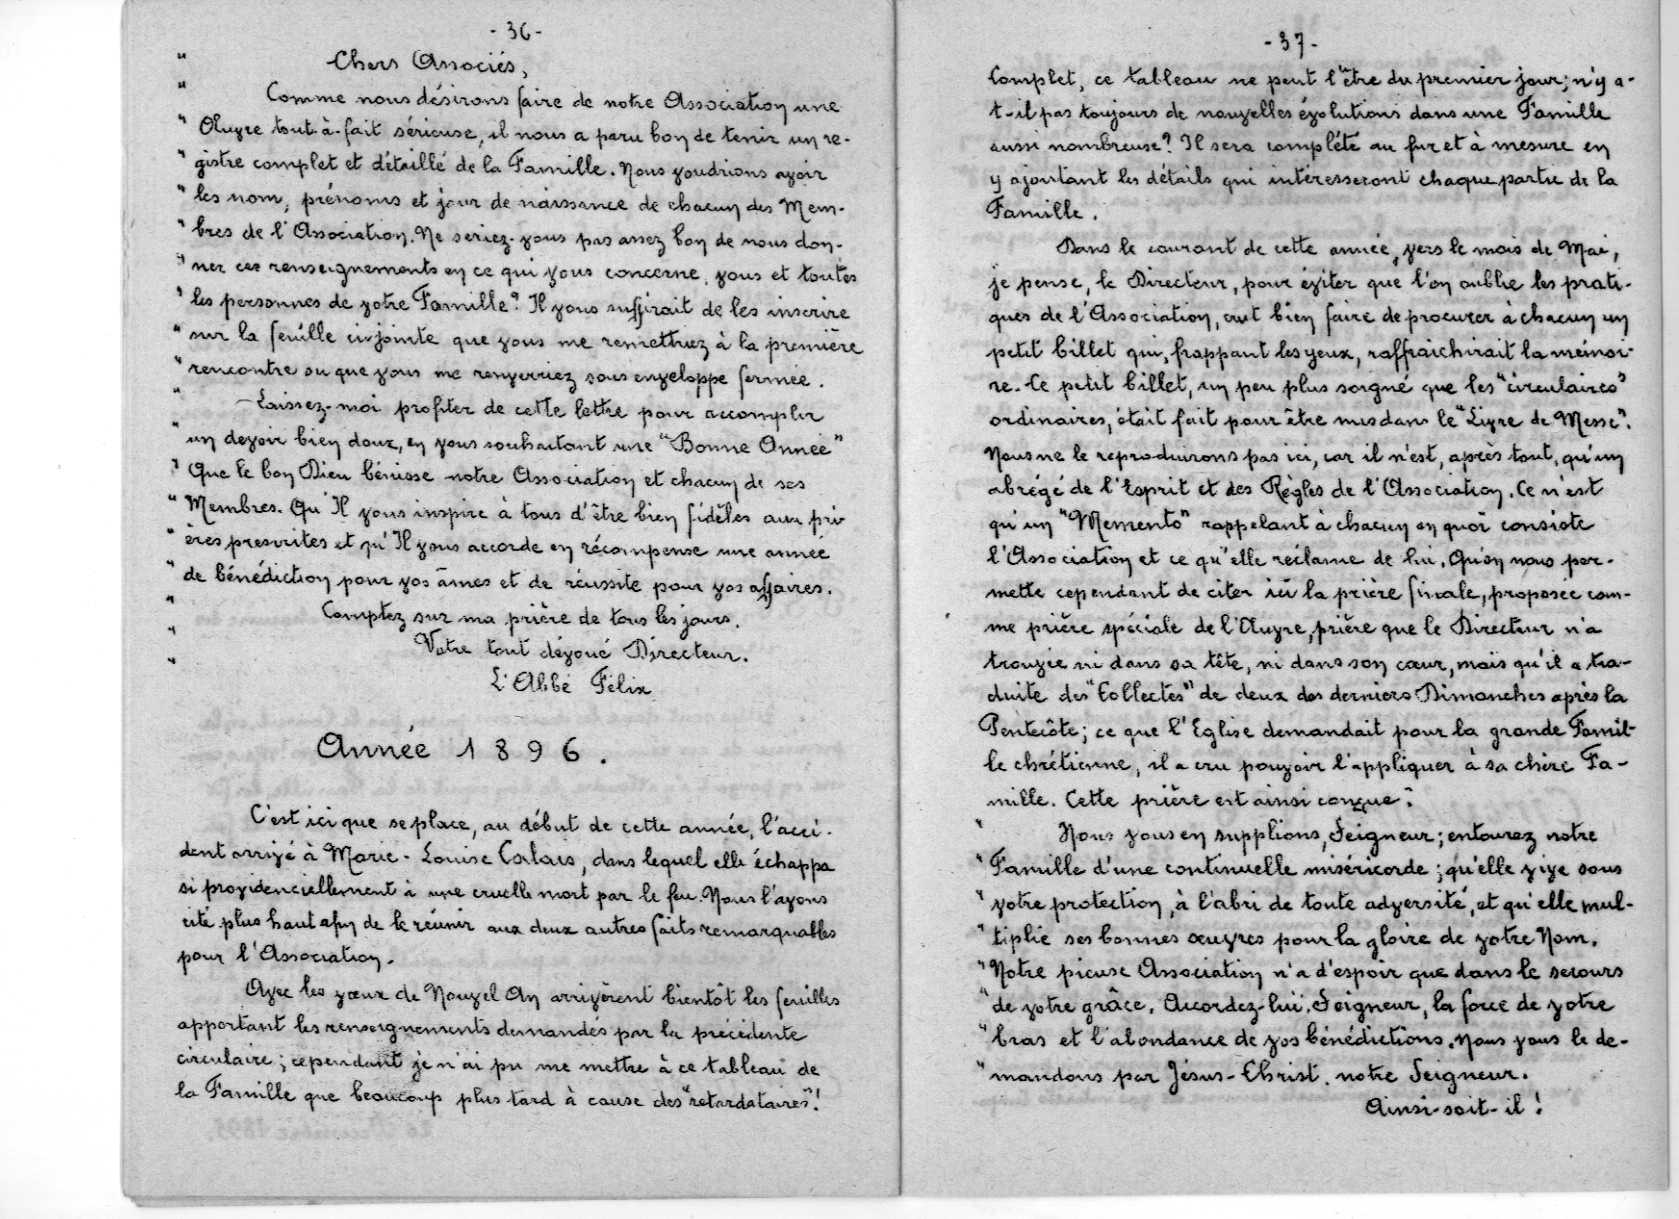 - 36 -
" Chers Associés,
" Comme nous désirons faire de notre Association une
" Œuvre tout-à-fait sérieuse, il nous a paru bon de tenir un re-
" gistre complet et détaillé de la Famille. Nous voudrions avoir
" les nom, prénoms et jour de naissance de chacun des Mem-
" bres de l'Association. Ne seriez-vous pas assez bon de nous don-
" ner ces renseignements en ce qui vous concerne, vous et toutes
" les personnes de votre Famille? Il vous suffirait de les inscrire
" sur la feuille ci-jointe que vous me remettriez à la première
" rencontre ou que vous me renverriez sous enveloppe fermée.
" - Laissez-moi profiter de cette lettre pour accomplir
" un devoir bien doux, en vous souhaitant une "Bonne Année"
" Que le bon Dieu bénisse notre Association et chacun de ses
" Membres. Qu'Il vous inspire à tous d'être bien fidèles aux pri-
" ères prescrites et qu'Il vous accorde en récompense une année
" de bénédiction pour vos âmes et de réussite pour vos affaires.
" Comptez sur ma prière de tous les jours.
" Votre tout dévoué Directeur.
" L'Abbé Félix
Année 1896.
C'est ici que se place, au début de cette année, l'acci-
dent arrivé à Marie-Louise Calais, dans lequel elle échappa
si providenciellement à une cruelle mort par le feu. Nous l'avons
cité plus haut afin de le réunir aux deux autres faits remarquables
pour l'Association.
Avec les vœux de Nouvel An arrivèrent bientôt les feuilles
apportant les renseignements demandés par la précédente
circulaire; cependant je n'ai pu me mettre à ce tableau de
la Famille que beaucoup plus tard à cause des "retardataires"!
- 37 -
Complet, ce tableau ne peut l'être du premier jour; n'y a-
t-il pas toujours de nouvelles évolutions dans une Famille
aussi nombreuse? Il sera complété au fur et à mesure en
y ajoutant les détails qui intéresseront chaque partie de la
Famille.
Dans le courant de cette année, vers le mois de Mai,
je pense, le Directeur, pour éviter que l'on oublie les prati-
ques de l'Association, crut bien faire de procurer à chacun un
petit billet qui, frappant les yeux, raffraichirait la mémoi-
re. Ce petit billet, un peu plus soigné que les "circulaires"
ordinaires, était fait pour être mis dans le "Livre de Messe".
Nous ne le reproduirons pas ici, car il n'est, après tout, qu'un
abrégé de l'Esprit et des Règles de l'Association. Ce n'est
qu'un "Memento" rappelant à chacun en quoi consiste
l'Association et ce qu'elle réclame de lui. Qu'on nous per-
mette cependant de citer ici la prière finale, proposée com-
me prière spéciale de l'Œuvre, prière que le Directeur n'a
trouvée ni dans sa tête, ni dans son cœur, mais qu'il a tra-
duite des "Collectes" de deux des derniers Dimanches après la
Pentecôte; ce que l'Eglise demandait pour la grande Famil-
le chrétienne, il a cru pouvoir l'appliquer à sa chère Fa-
mille. Cette prière est ainsi conçue:
" Nous vous en supplions, Seigneur; entourez notre
" Famille d'une continuelle miséricorde; qu'elle vive sous
" votre protection, à l'abri de toute adversité, et qu'elle mul-
" tiplie ses bonnes œuvres pour la gloire de votre Nom.
" Notre pieuse Association n'a d'espoir que dans le secours
" de votre grâce. Accordez-lui, Seigneur, la force de votre
" bras et l'abondance de vos bénédictions. Nous vous le de-
" mandons par Jésus-Christ, notre Seigneur.
Ainsi-soit-il!